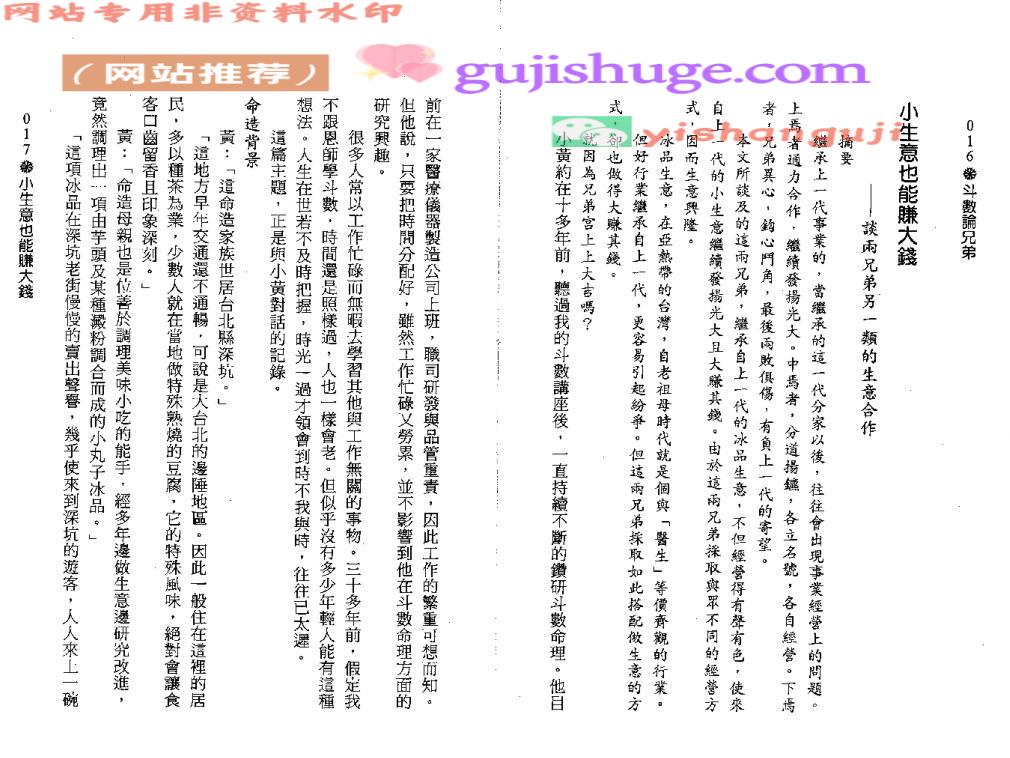 网站专用非资料水印
（网站推荐）
gujishuge.com
yishanguji
016❋斗數論兄弟
小生意也能賺大錢
——談兩兄弟另一類的生意合作
摘要
繼承上一代事業的，當繼承的這一代分家以後，往往會出現事業經營上的問題。
上焉者通力合作，繼續發揚光大。中焉者，分道揚鑣，各立名號，各自經營。下焉
者，兄弟異心，鈎心鬥角，最後兩敗俱傷，有負上一代的寄望。
本文所談及的這兩兄弟，繼承自上一代的冰品生意，不但經營得有聲有色，使來
自上一代的小生意繼續發揚光大且大賺其錢。由於這兩兄弟採取與眾不同的經營方
式，因而生意興隆。
冰品生意，在亞熱帶的台灣，自老祖母時代就是個與「醫生」等價齊觀的行業。
但好行業繼承自上一代，更容易引起紛爭。但這兩兄弟採取如此搭配做生意的方
式，卻也做得大賺其錢。
就因為兄弟宮上上大吉嗎？
小黃約在十多年前，聽過我的斗數講座後，一直持續不斷的鑽研斗數命理。他目
前在一家醫療儀器製造公司上班，職司研發與品管重責，因此工作的繁重可想而知。
但他說，只要把時間分配好，雖然工作忙碌又勞累，並不影響到他在斗數命理方面的
研究興趣。
很多人常以工作忙碌而無暇去學習其他與工作無關的事物。三十多年前，假定我
不跟恩師學斗數，時間還是照樣過，人也一樣會老。但似乎沒有多少年輕人能有這種
想法。人生在世若不及時把握，時光一過才領會到時不我與時，往往已太遲。
這篇主題，正是與小黃對話的記錄。
命造背景
黃：「這命造家族世居台北縣深坑。」
「這地方早年交通還不通暢，可說是大台北的邊陲地區。因此一般住在這裡的居
民，多以種茶為業，少數人就在當地做特殊熟燒的豆腐，它的特殊風味，絕對會讓食
客口齒留香且印象深刻。」
黃：「命造母親也是位善於調理美味小吃的能手，經多年邊做生意邊研究改進，
竟然調理出一項由芋頭及某種澱粉調合而成的小丸子冰品。」
「這項冰品在深坑老街慢慢的賣出聲譽，幾乎使來到深坑的遊客，人人來上一碗
017❋小生意也能賺大錢